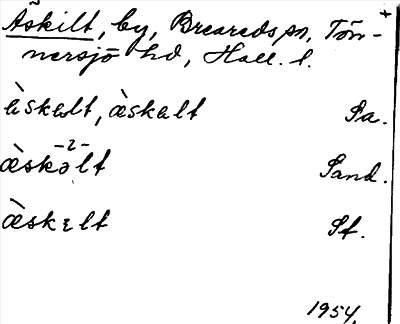 Äskilt, by, Breareds sn, Tön-
nersjö hd, Hall. l.
ὲskəlt, æ̀skəlt Sa.
-2-
æ̀skəlt Sand.
æ̀skɪlt Sf.
1954.